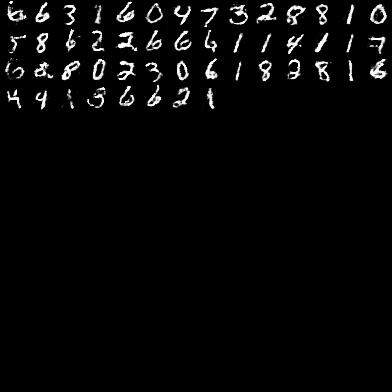 6 6 3 1 6 0 4 7 3 2 8 8 1 0
5 8 6 2 2 6 6 6 1 1 4 1 1 7
6 2 8 0 2 3 0 6 1 8 2 8 1 6
4 4 1 5 6 6 2 1